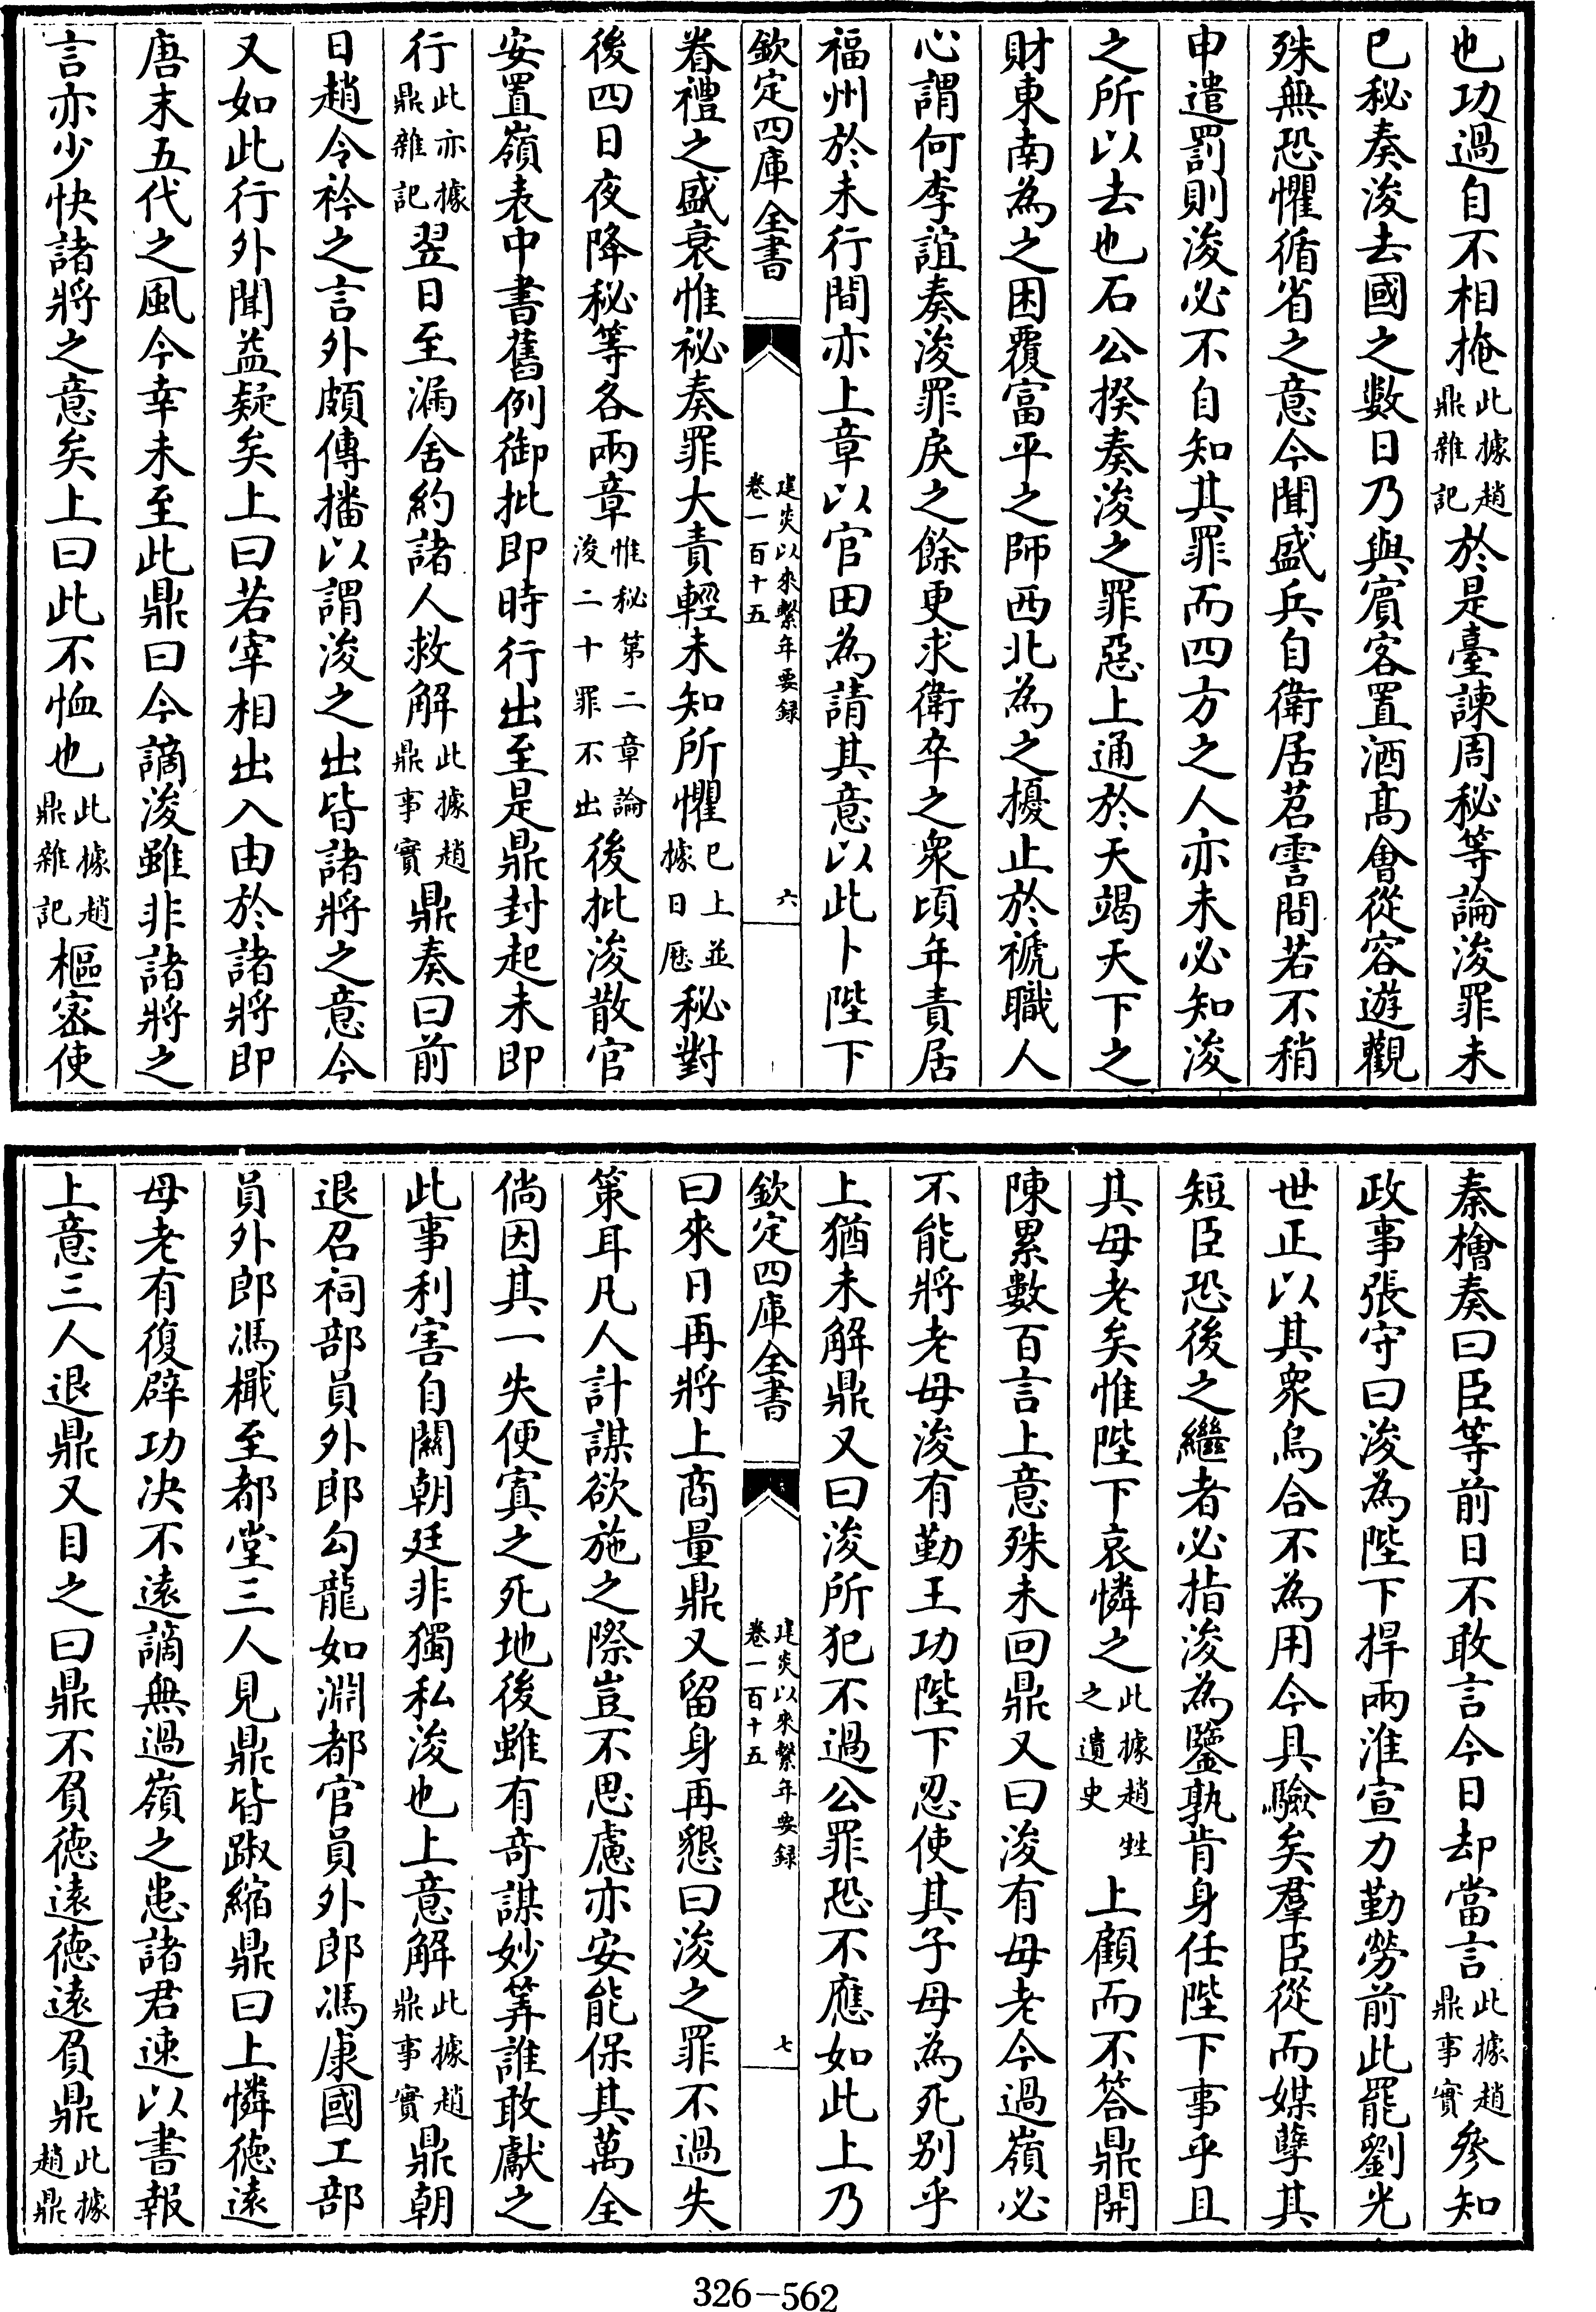 也功過自不相掩此據趙鼎雜記於是臺諫周秘等論浚罪未
已秘奏浚去國之數日乃與賓客置酒高會從容遊觀
殊無恐懼循省之意今聞盛兵自衛居苕霅間若不稍
申遣罰則浚必不自知其罪而四方之人亦未必知浚
之所以去也石公揆奏浚之罪惡上通於天竭天下之
財東南為之困覆富平之師西北為之擾止於褫職人
心謂何李誼奏浚罪戾之餘更求衛卒之衆頃年責居
福州於未行間亦上章以官田為請其意以此卜陛下
欽定四庫全書
建炎以來繫年要録
卷一百十五
六
眷禮之盛衰惟祕奏罪大責輕未知所懼已上並據日厯秘對
後四日夜降秘等各兩章惟秘第二章論浚二十罪不出後批浚散官
安置嶺表中書舊例御批即時行出至是鼎封起未即
行此亦據鼎雜記翌日至漏舍約諸人救解此據趙鼎事實鼎奏曰前
日趙令衿之言外頗傳播以謂浚之出皆諸將之意今
又如此行外聞益疑矣上曰若宰相出入由於諸將即
唐末五代之風今幸未至此鼎曰今謫浚雖非諸將之
言亦少快諸將之意矣上曰此不恤也此據趙鼎雜記樞密使
秦檜奏曰臣等前日不敢言今日却當言此據趙鼎事實參知
政事張守曰浚為陛下捍兩淮宣力勤勞前此罷劉光
世正以其衆烏合不為用今具驗矣羣臣從而媒孽其
短臣恐後之繼者必指浚為鑒孰肯身任陛下事乎且
其母老矣惟陛下哀憐之此據趙甡之遺史上顧而不答鼎開
陳累數百言上意殊未回鼎又曰浚有母老今過嶺必
不能將老母浚有勤王功陛下忍使其子母為死别乎
上猶未解鼎又曰浚所犯不過公罪恐不應如此上乃
欽定四庫全書
建炎以來繫年要録
卷一百十五
七
曰來日再將上商量鼎又留身再懇曰浚之罪不過失
策耳凡人計謀欲施之際豈不思慮亦安能保其萬全
倘因其一失便寘之死地後雖有奇謀妙筭誰敢獻之
此事利害自關朝廷非獨私浚也上意解此據趙鼎事實鼎朝
退召祠部員外郎勾龍如淵都官員外郎馮康國工部
員外郎馮檝至都堂三人見鼎皆踧縮鼎曰上憐德遠
母老有復辟功决不遠謫無過嶺之患諸君速以書報
上意三人退鼎又目之曰鼎不負德遠德遠負鼎此據趙鼎
326-562